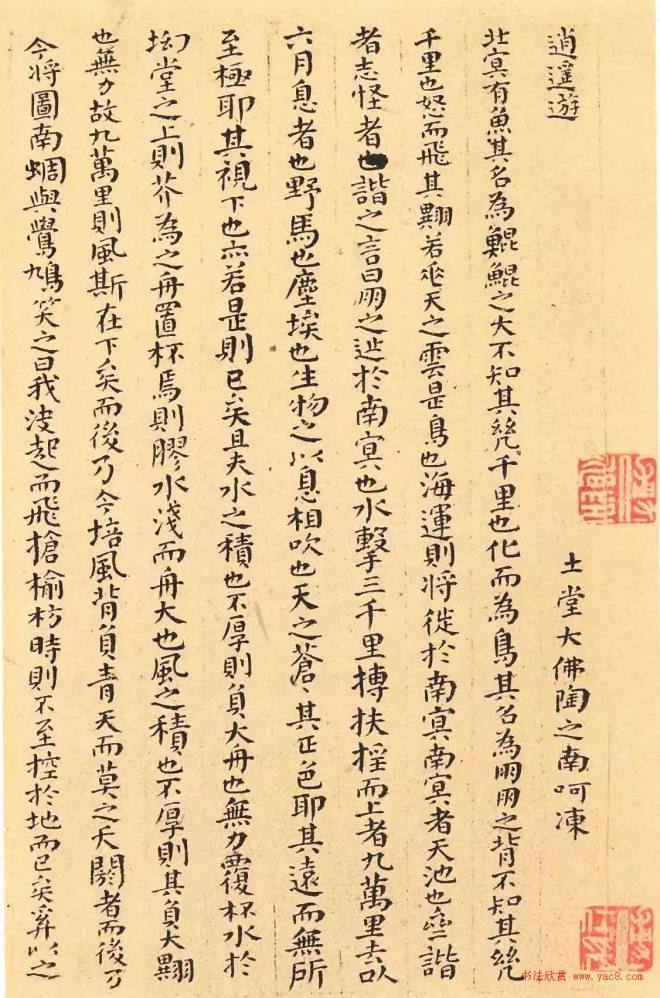 逍遥遊
土堂大佛陶之南呵凍
北冥有魚其名為鯤鯤之大不知其幾千里也化而為鳥其名為鵬鵬之背不知其幾
千里也怒而飛其翼若垂天之雲是鳥也海運則將徙於南冥南冥者天池也齊諧
者志怪者也諧之言曰鵬之徙於南冥也水擊三千里摶扶搖而上者九萬里去以
六月息者也野馬也塵埃也生物之以息相吹也天之蒼〻其正色耶其遠而無所
至極耶其視下也亦若是則已矣且夫水之積也不厚則負大舟也無力覆杯水於
坳堂之上則芥為之舟置杯焉則膠水淺而舟大也風之積也不厚則其負大翼
也無力故九萬里則風斯在下矣而後乃今培風背負青天而莫之夭閼者而後乃
今將圖南蜩與鷽鳩笑之曰我决起而飛搶榆枋時則不至控於地而已矣奚以之
书法欣赏 www.yac8.com